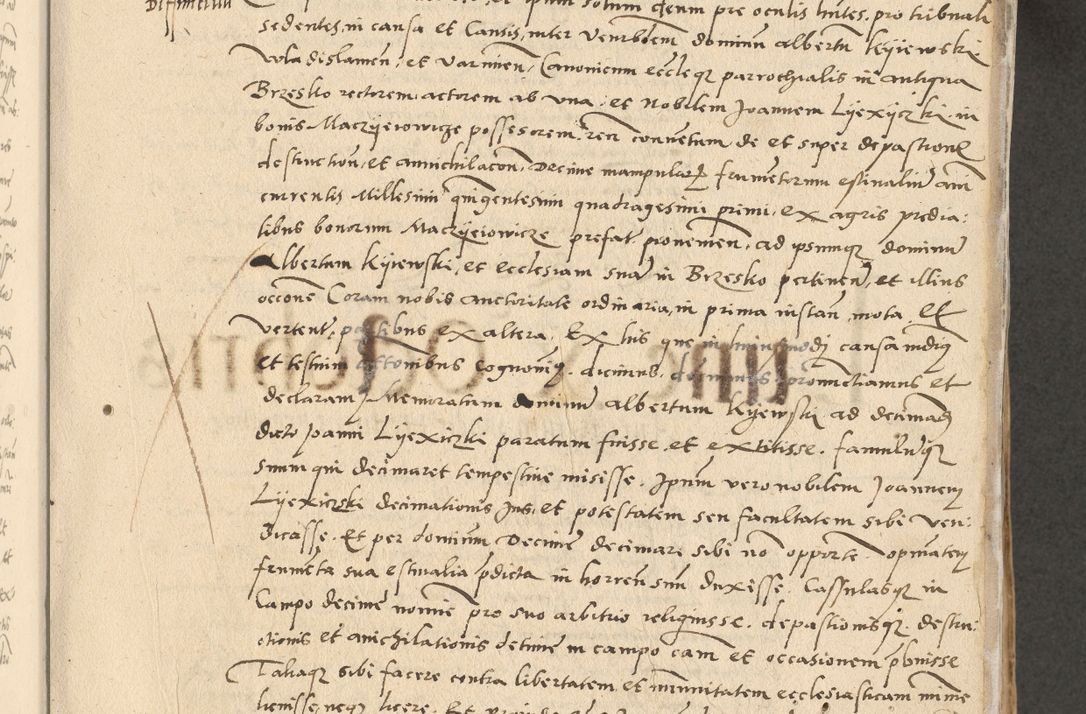 Diffinitiu
et ipsum solum deum pre oculis hntes. pro tribunali
sedentes, in causa et Causis, inter Venerbilem dominum Albertum Kyiewski
Vladislauien, et Varmien, Canonicum ecclieqz parrochialis in antiqua
Brzesko rectorem, actorem ab vna. et Nobilem Joannem Lyexyczki in
bonis Maczyeiowicze possesorem reum conuentum de et super depastione
destruction, et annichilacon, Decime manipular frumentorum estiualium anni
currentis Millesimi quingentesimi quadragesimi primi, ex agris predia:
libus bonorum Maczyeiowicze prefat. prouenien, ad ipsumqz dominum
Albertum Kyiewski, et ecclesiam suam in Brzesko pertinen, et illius
occone Coram nobis auctoritate ordinaria, in prima instan, mota. et
vertent, partibus ex altera. Ex his que in huiusmodi causa
et testium Cognouimus, dicimus, pronunctiamus et
declaram, Memoratum dominum Albertum Kyewski ad decimand
dicto Joanni Lyexiczki paratum fuisse, et extitisse. famulumqz
suum qui decimaret tempestiue misisse. Ipsum vero nobilem Joannem
Lyexiczski decimationis Jus, et potestatem seu facultatem sibi ven:
dicasse. Et per dominum Decime decimari sibi no opporte opinatem
frumenta sua estiualia pdicta in horreu suu duxisse. Cassulasqz in
Campo decime nomine pro suo arbitrio reliquisse. depastionisqz. destru:
ctionis et anichilationis decime in campo cam et occasionem pbuisse
Taliaqz sibi facere contra libertatem, et immunitatem ecclesiasticam minime
licuisse, neqz licere. Et